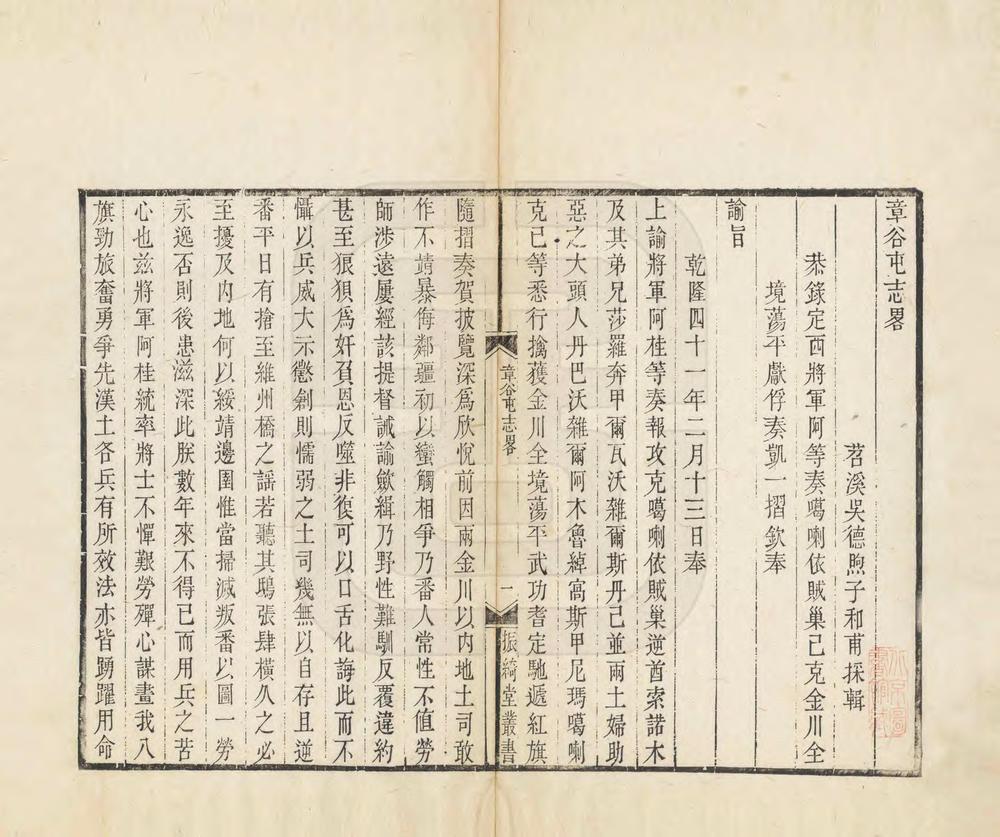 章谷屯志畧
苕溪吳德煦子和甫採輯
恭錄定西將軍阿等奏噶喇依賊巢已克金川全
境蕩平獻俘奏凱一摺欽奉
諭旨
乾隆四十一年二月十三日奉
上諭將軍阿桂等奏報攻克噶喇依賊巢逆酋索諾木
及其弟兄莎羅奔甲爾瓦沃雜爾斯丹巳並兩土婦助
惡之大頭人丹巴沃雜爾阿木魯綽窩斯甲尼瑪噶喇
克巴等悉行擒獲金川全境蕩平武功耆定馳遞紅旗
章谷屯志畧
一
振綺堂叢書
隨摺奏賀披覽深爲欣悅前因兩金川以內地土司敢
作不靖暴侮鄰疆初以蠻觸相爭乃番人常性不值勞
師涉遠屢經該提督誡諭歛緝乃野性難馴反覆違約
甚至狼狽爲奸負恩反噬非復可以口舌化誨此而不
懾以兵威大示懲創則懦弱之土司幾無以自存且逆
番平日有搶至維州橋之謠若聽其鴟張肆橫久之必
至擾及內地何以綏靖邊圉惟當掃滅叛番以圖一勞
永逸否則後患滋深此朕數年來不得已而用兵之苦
心也兹將軍阿桂統率將士不憚艱勞殫心謀畫我八
旗勁旅奮勇爭先漢土各兵有所效法亦皆踴躍用命